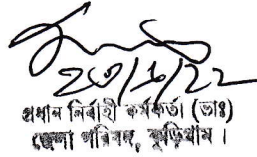 ২৩/১/২২
প্রধান নির্বাহী কর্মকর্তা (ভাঃ)
জেলা পরিষদ, কুড়িগ্রাম।